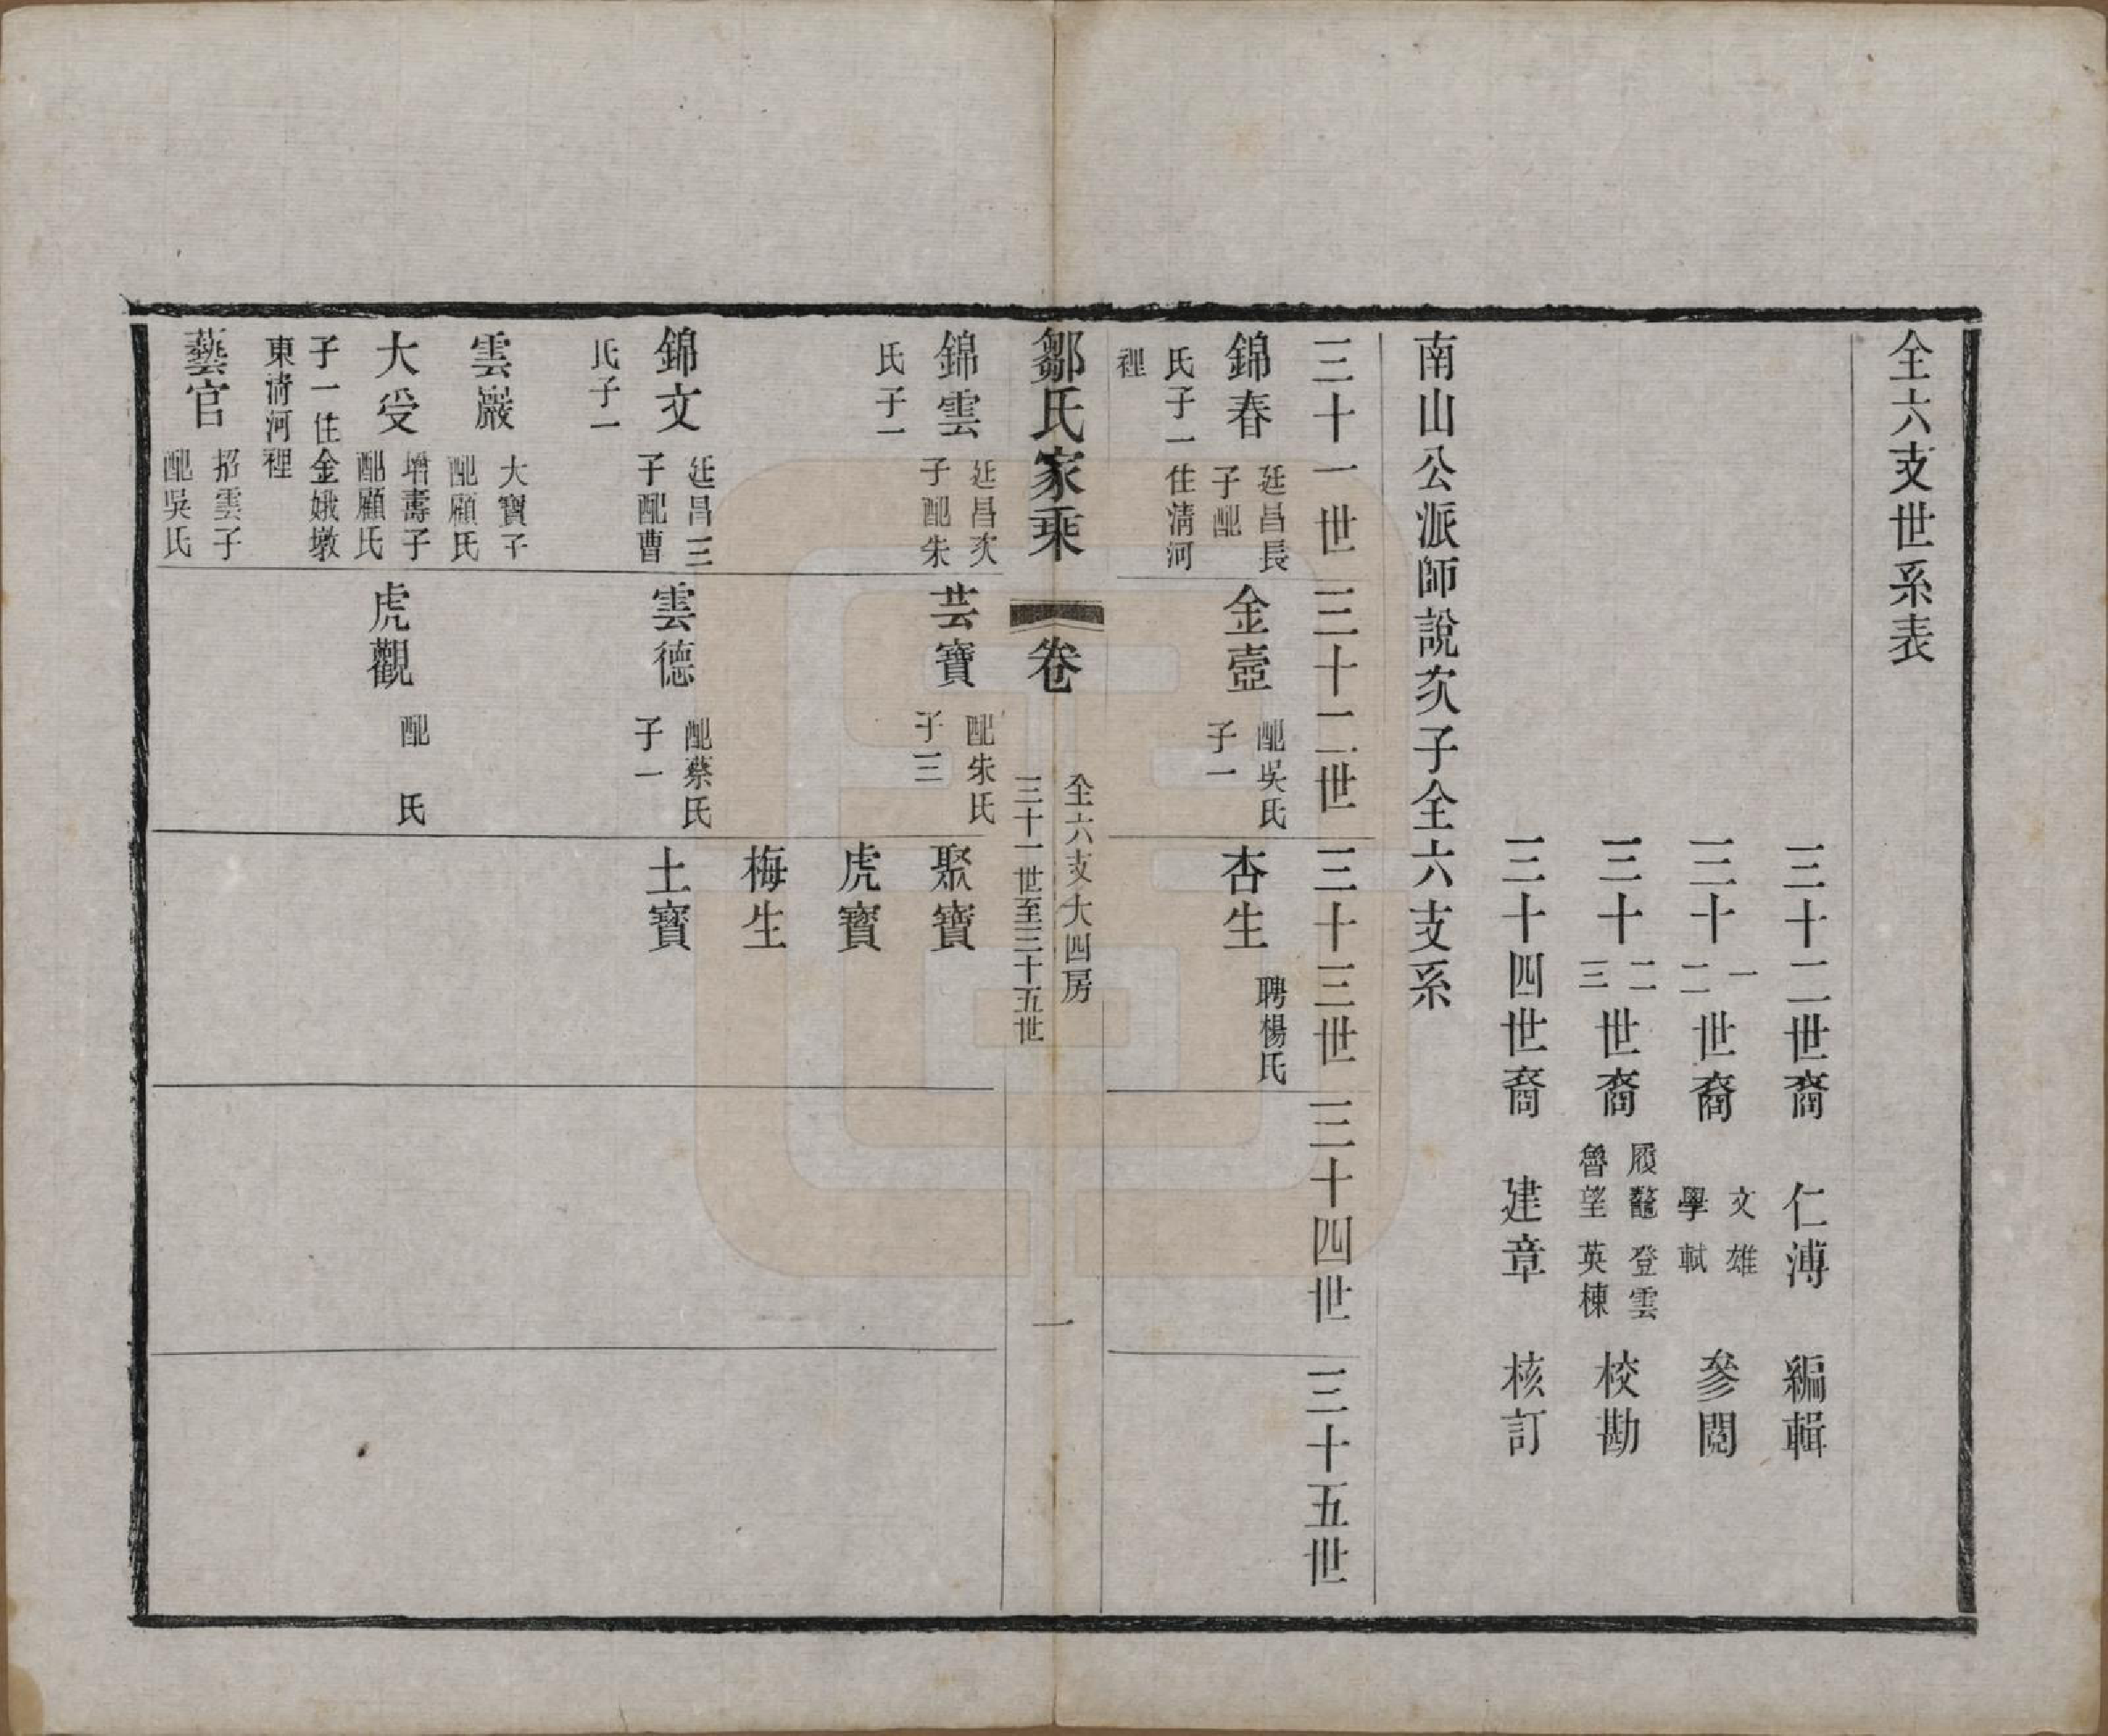 全六支世系表
三十二世裔　仁溥　編輯
三十一二世裔　文雄　學軾　參閱
三十二三世裔　履鼇　登雲　魯望　英棟　校勘
三十四世裔　建章　核訂
南山公派師說次子全六支系
三十一世　三十二世　三十三世　三十四世　三十五世
錦春　廷昌長子配氏子一住清河裡　金壺　配吳氏子一　杏生　聘楊氏
鄒氏家乘　卷　全六支大四房　三十一世至三十五世　一
錦雲　廷昌次子配朱氏子一　芸寶　配朱氏子三　聚寶
虎寶
梅生
錦文　廷昌三子配曹氏子一　雲德　配蔡氏子一　土寶
雲巖　大寶子配顧氏
大受　增壽子配顧氏子一住金娥墩東清河裡　虎觀　配　氏
藝官　招雲子配吳氏